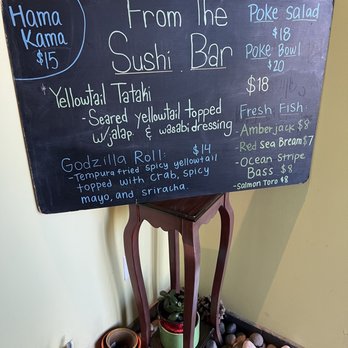 Hama
Kama
$15
From The
Sushi Bar
Yellowtail Tataki
$18
- Seared yellowtail topped
w/jalap. & wasabi dressing.
Godzilla Roll: $14
- Tempura fried spicy yellowtail
topped with crab, spicy
mayo, and sriracha.
Poke Salad
$18
Poke Bowl
$20
Fresh Fish:
Amberjack $8
Red Sea Bream $7
- Ocean Stripe
Bass $8
- Salmon Toro $8